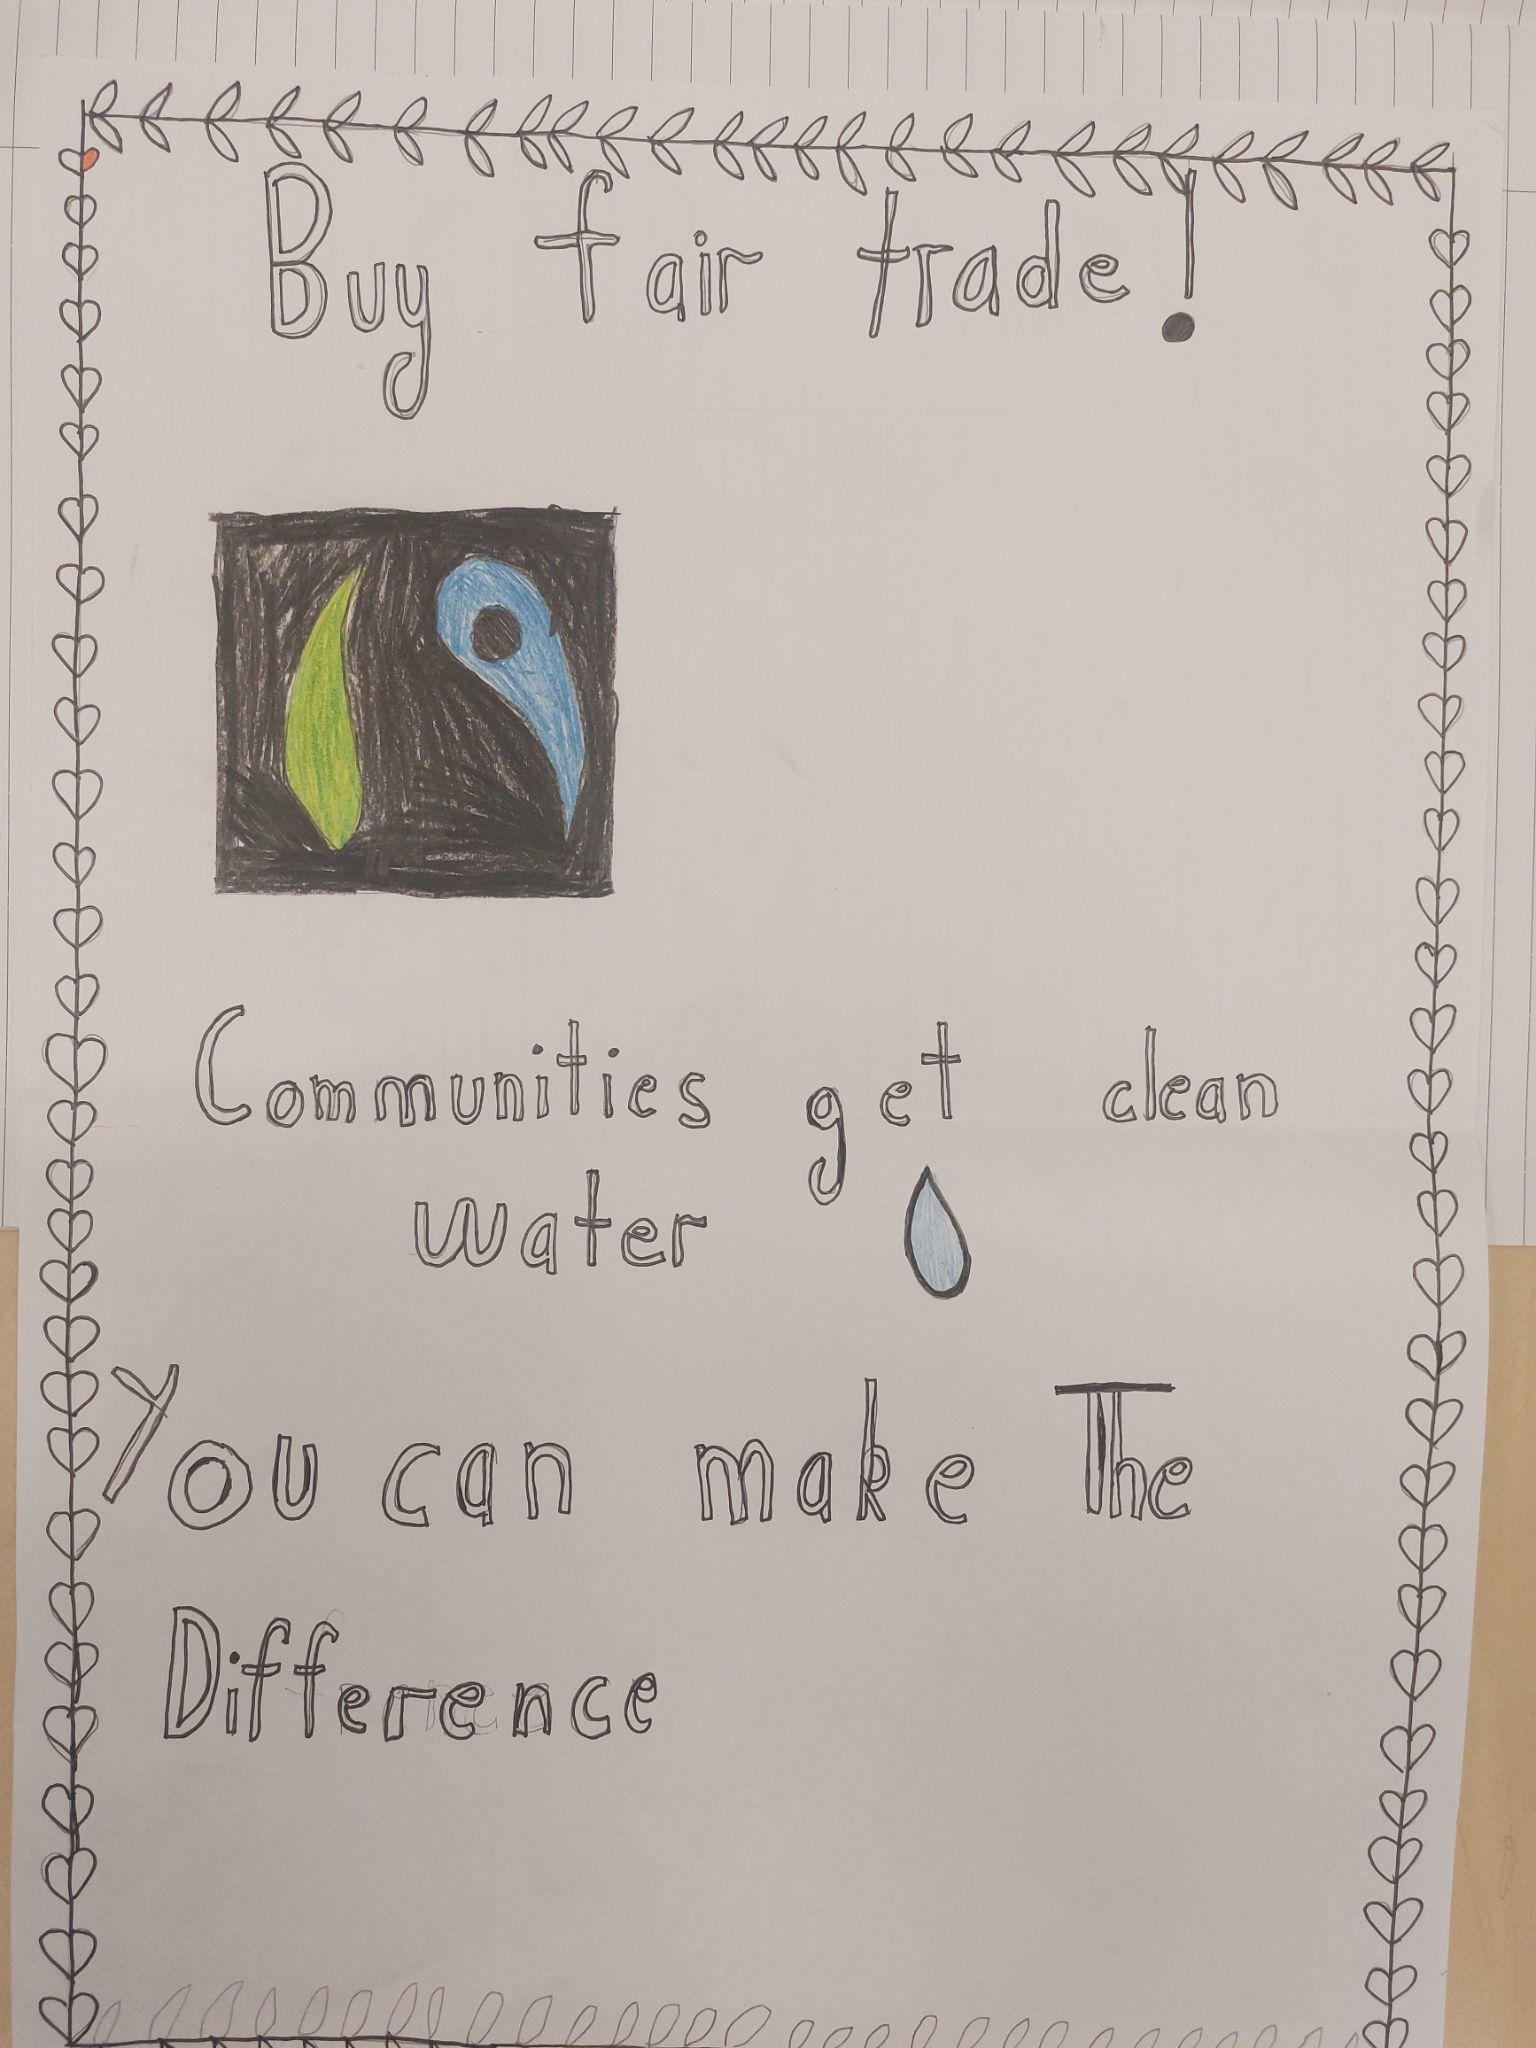 Buy fair trade!
Communities get clean
water
You can make The
Difference